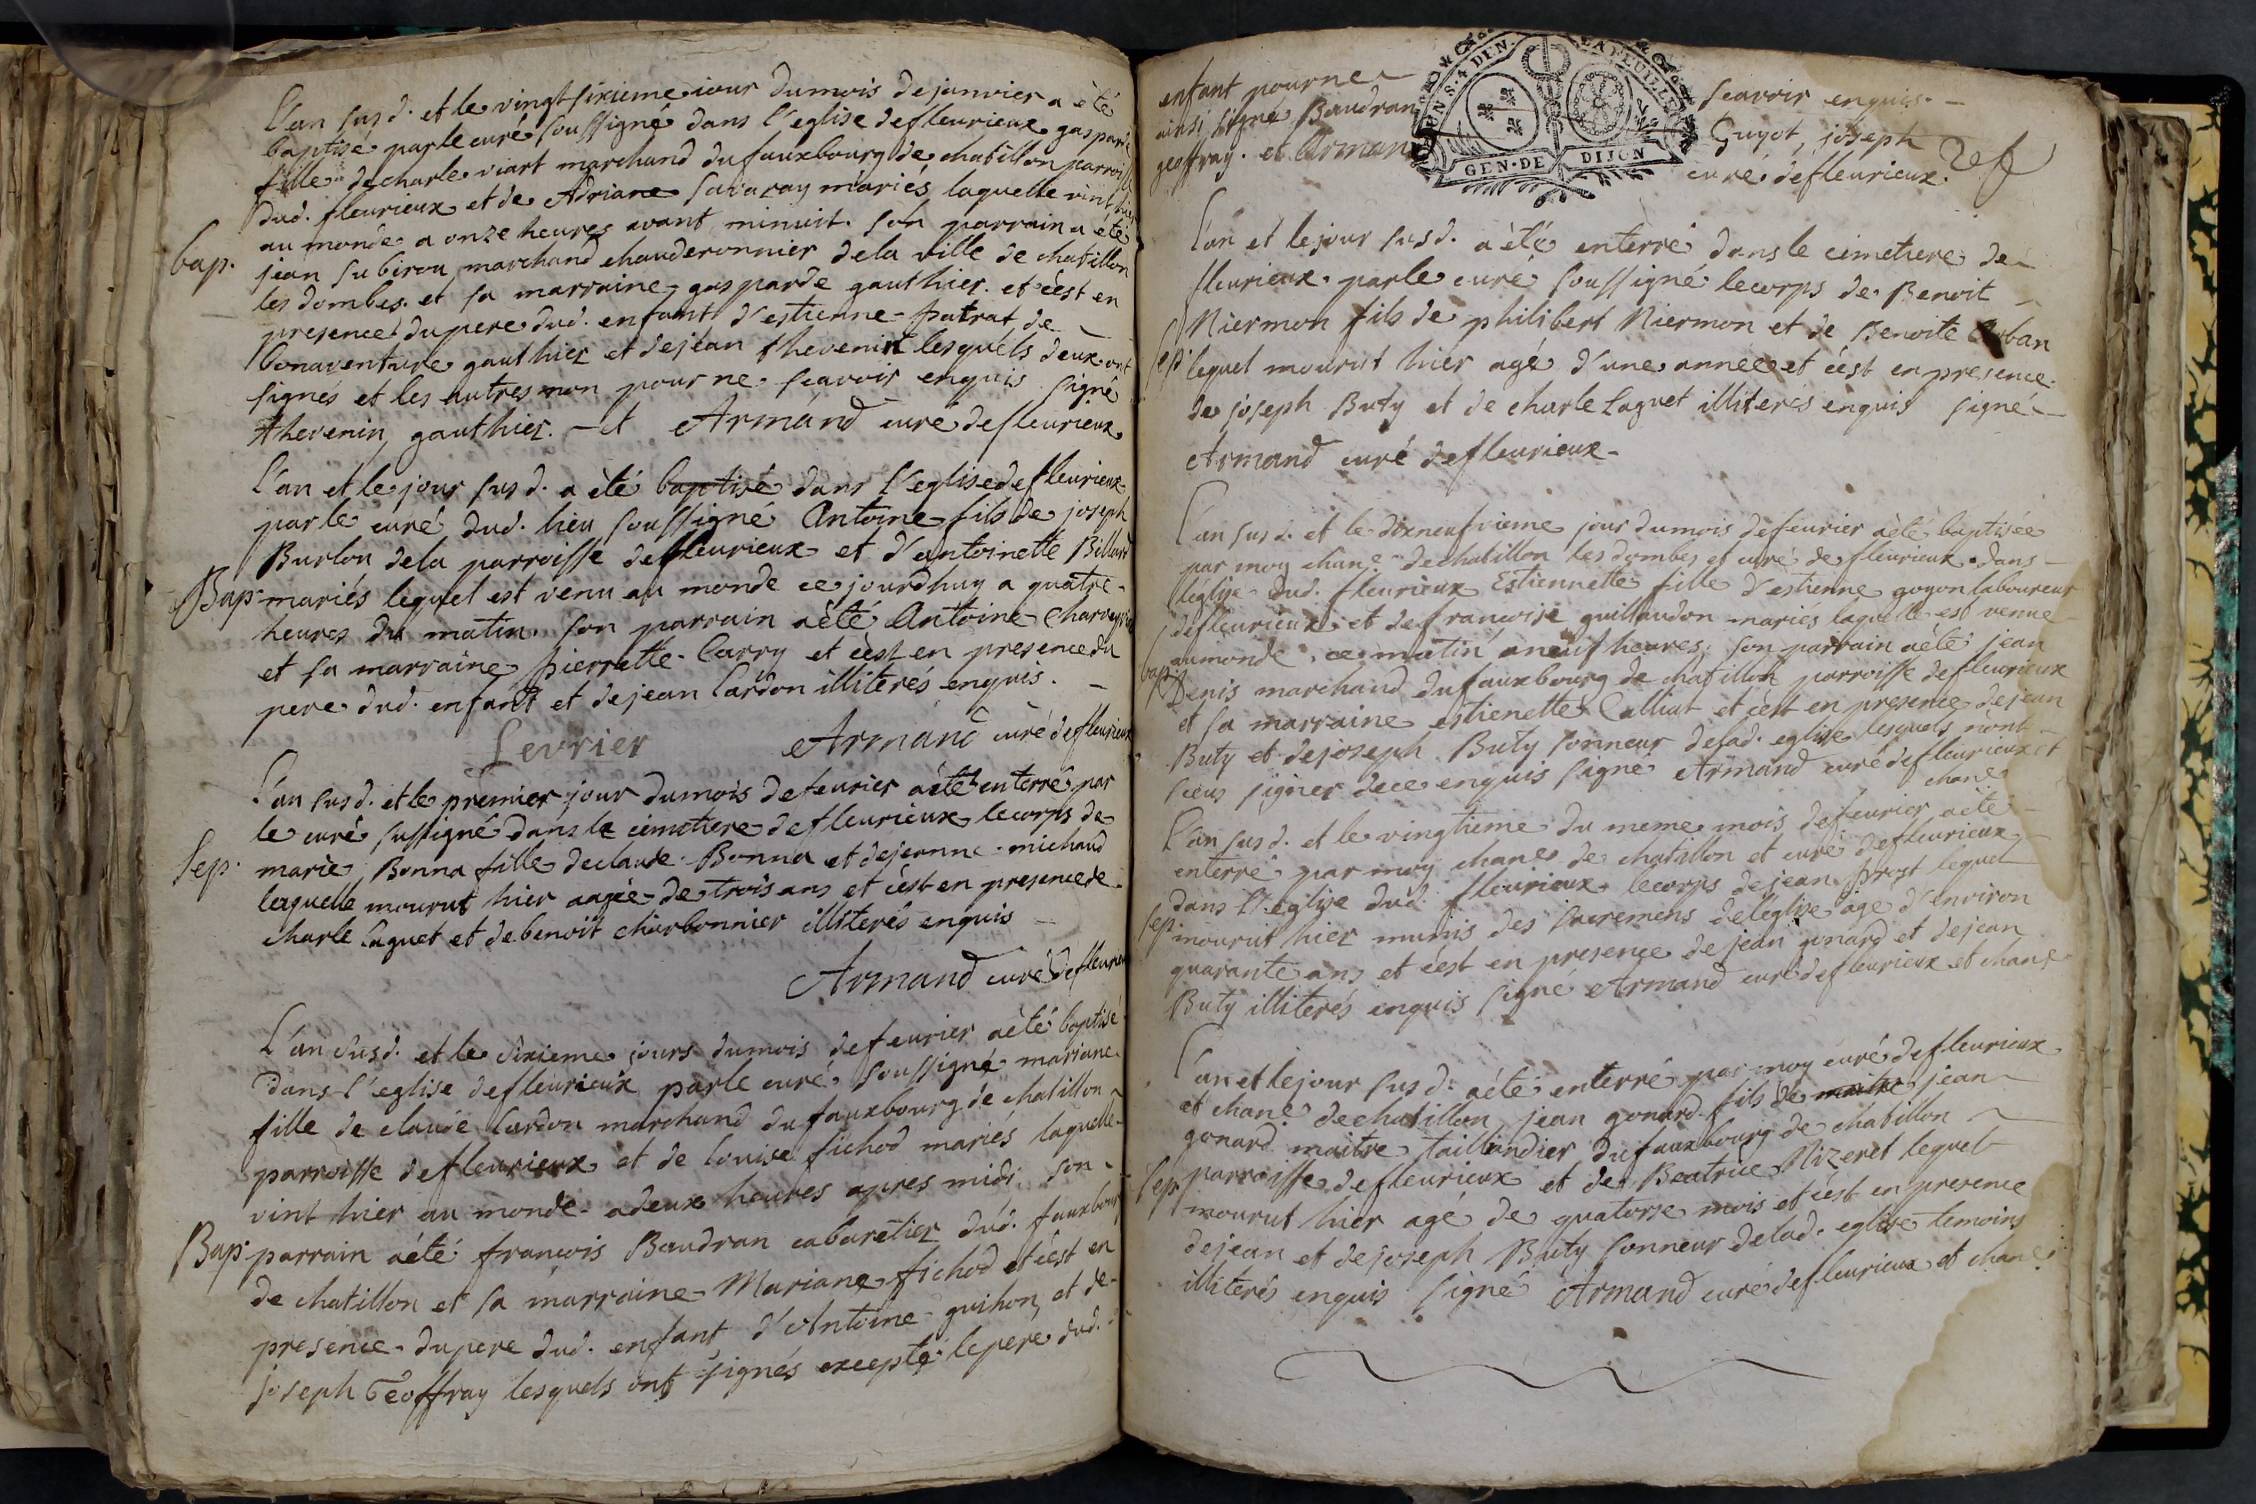 L'an susd. et le vingt sixieme iour du mois de janvier a eté
baptisé par le curé soussigné dans l'eglise de fleurieux gasparde
fille de charle viart marchand du fauxbourg de chatillon parroisse
dud. fleurieux et de Adriane savaray mariés laquelle vint hier
au monde a onze heures avant minuit. son parrain a été
bap. jean subirou marchand chauderonnier de la ville de chatillon
les dombes. et sa marraine gasparde gauthier. et c'est en
presence du pere dud. enfant d'estienne patrat de
bonaventure gauthier et de jean thevenin lesquels deux ont
signés et les autres non pour ne scavoir enquis signé
thevenin, gauthier. et Armand curé de fleurieux
L'an et le jour susd. a été baptisé dans l'eglise de fleurieux
par le curé dud. lieu soussigné Antoine fils de joseph
Burlon de la parroisse de fleurieux et d'antoinette Billard
Bap. mariés lequel est venu au monde ce jourdhuy a quatre
heures du matin. son parrain a été Antoine
et sa marraine pierrette Carry et c'est en presence du
pere dud. enfant et de jean Cardon illiterés enquis.
Armand curé de fleurieux
Levrier
L'an susd. et le premier jour du mois de feurier a été enterré par
le curé sussigné dans le cimetiere de fleurieux le corps de
Sep. marie Bonna fille de claude Bonna et de jeanne michaud
laquelle mourut hier aagée de trois ans et c'est en presence de
charle Laguet et de benoit charbonnier illiterés enquis
Armand curé de fleurieu
L'an susd. et le sixieme jours du mois de feurier a été baptisé
dans l'eglise de fleurieux par le curé soussigné mariane
fille de claude Cardon marchand du fauxbourg de chatillon
parroisse de fleurieux et de louise fichod mariés laquelle
vint hier au monde a deux heures apres midi. son
Bap. parrain a été francois Baudran cabaretier dud. fauxbourg
de chatillon et sa marraine Mariane fichod et c'est en
presence du pere dud. enfant d'Antoine guihon, et de
joseph Geoffray lesquels ont signés excepté le pere dud.
enfant pour ne scavoir enquis.
ainsi signé Baudran Guyot, joseph
geoffray. et Armand curé de fleurieux.
GEN. DE DIJON
L'an et le jour susd. a été enterré dans le cimetiere de
fleurieux par le curé soussigné le corps de Benoit
Niermon fils de philibert Niermon et de Benoite Corban
sep. lequel mourut hier agé d'une annee et c'est en presence
de joseph Buty et de charle Laguet illiterés enquis signé
Armand curé de fleurieux
L'an susd. et le dixneufvieme jour du mois de feurier a été baptisée
par moy chane de chatillon les dombes et curé de fleurieux dans
l'eglise dud. fleurieux Estiennette fille d'estienne goyon laboureur
de fleurieux et de francoise guillaudon mariés laquelle est venue
au monde ce matin a neuf heures. son parrain a été jean
bap. Denis marchand du fauxbourg de chatillon parroisse de fleurieux
et sa marraine estienette Calliat et c'est en presence de jean
Buty et de joseph Buty sonneur de lad. eglise lesquels n'ont
sceus signer de ce enquis signé Armand curé de fleurieux et
chane
L'an susd. et le vingtieme du meme mois de feurier a été
enterré par moy chane de chatillon et curé de fleurieux
dans l'eglise dud. fleurieux le corps de jean prost lequel
sep. mourut hier munis des sacremens de l'eglise agé d'environ
quarante ans et c'est en presence de jean gonard et de jean
Buty illiterés enquis signé Armand curé de fleurieux et chane
L'an et le jour susd. a été enterré par moy curé de fleurieux
et chane de chatillon jean gonard fils de maitre jean
gonard maitre taillandier du fauxbourg de chatillon
Sep. parroisse de fleurieux et de Beatrice Nizeret lequel
mourut hier agé de quatorse mois et c'est en presence
de jean et de joseph Buty sonneur de lad. eglise temoins
illiterés enquis signé Armand curé de fleurieux et chane